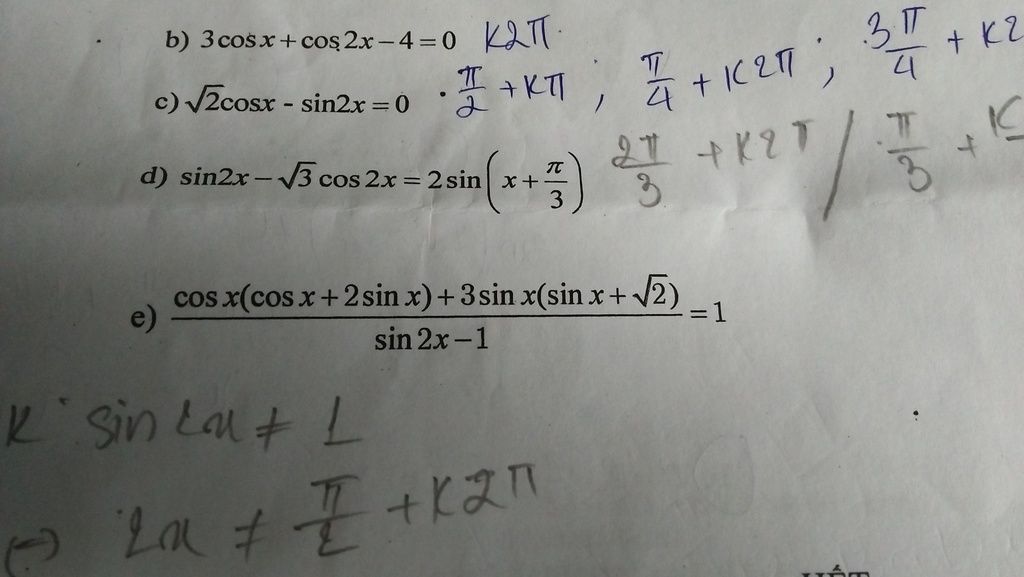 b) 3cosx + cos2x − 4 = 0 K2π
c) √2cosx - sin2x = 0 · π/2 + Kπ ; π/4 + K2π ; 3π/4 + K2
d) sin2x − √3 cos2x = 2sin(x + π/3) 2π/3 + K2π / π/3 + K
e) (cosx(cosx + 2sinx) + 3sinx(sinx + √2))/(sin2x − 1) = 1
K sin2x ≠ 1
(=) 2x ≠ π/2 + K2π
HẾT